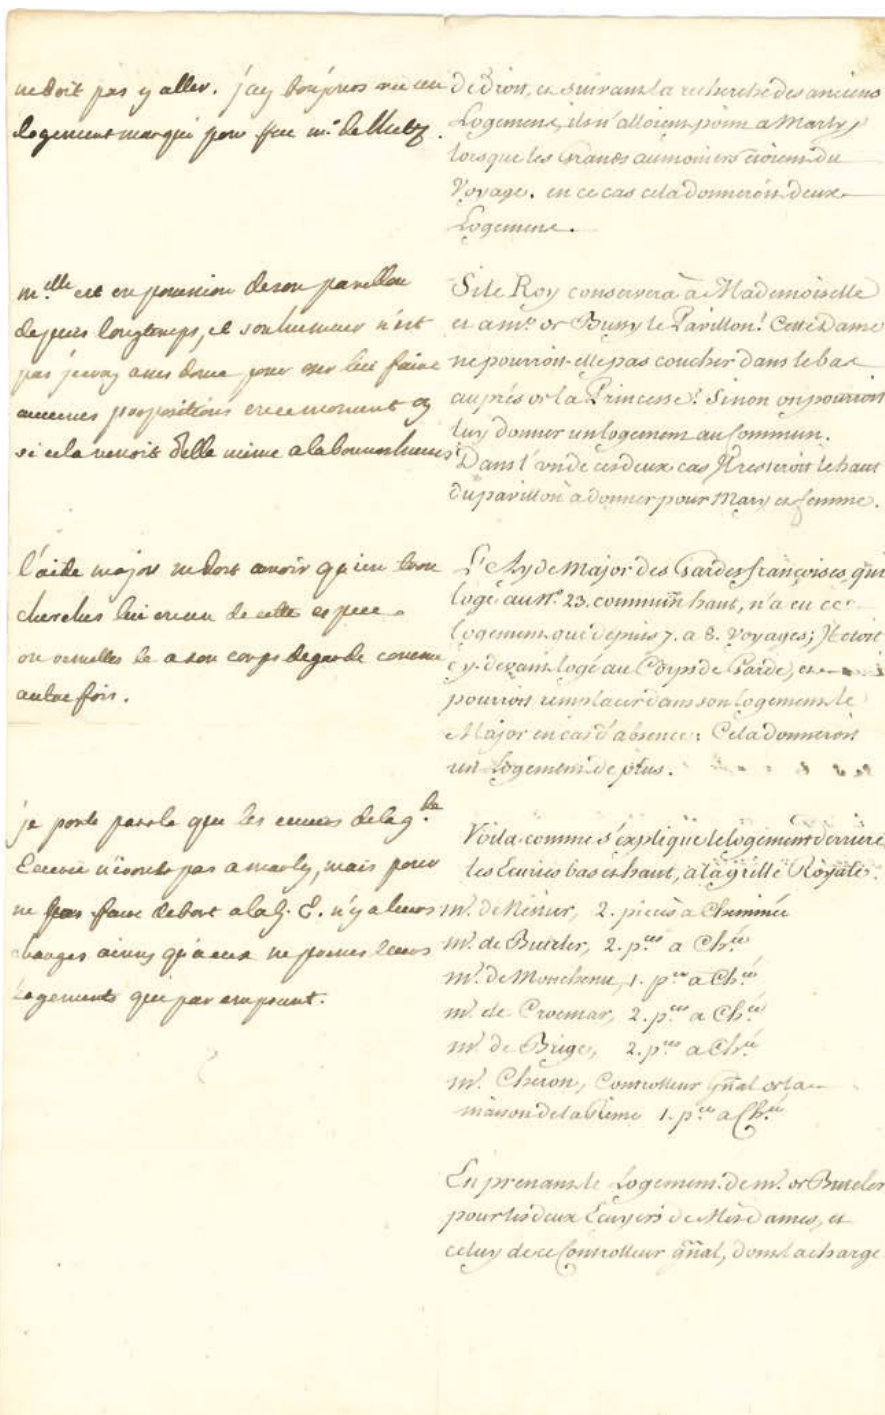 ne doit pas y aller. j'ay toujours vu un
logement marqué pour feu mr. de Metz.
m.elle est en possession de son pavillon
depuis longtemps, et son humeur n'est
pas je croy assez douce pour oser lui faire
aucunes propositions en ce moment cy
si cela venoit d'elle même a la bonne heure
l'aide major ne doit avoir qu'un trou
cherchés lui en un de cette espece
ou remettes le a son corps de garde comme
autrefois.
je porte parole que les ecuiers de la g.de
Ecurie n'iront pas a marly, mais pour
ne pas faire de tort a la g. E. n'y a leurs
charges ainsy qu'a eux ne prenes leurs
logements que par emprunt.
de Dion, et suivant la recherche des anciens
Logemens, ils n'alloient point a Marly,
lorsque les Grands aumoniers étoient du
Voyage. en ce cas cela donneroit deux
Logemens.
Si le Roy conservera à Mademoiselle
et a me. de Bussy le Pavillon? Cette Dame
ne pourroit-elle pas coucher dans le bas
auprés de la Princesse? Sinon on pourroit
luy donner un logement au Commun.
Dans l'un de ces deux cas Il resteroit le haut
du pavillon à donner pour Mary et femme.
L'Ayde Major des Gardes françoises qui
logé au N.o 23. commun haut, n'a eu ce
logement que depuis 7. a 8. Voyages; Il etoit
cy-devant logé au Corps de Garde, et
pourroit remplacer dans son logement le
Major en cas d'absence: Cela donneroit
un Logement de plus.
Voila comme s'explique le logement derriere
les Ecuries bas et haut, a la grille Royale.
mr. de Nesmer, 2. pieces a Cheminée
mr. de Buteler, 2. p.ces a Ch.ée
mr. de Monchenu, 1. p.ce a Ch.ée
mr. de Croemar, 2. p.ces a Ch.ée
mr. de Brige, 2. p.ces a Ch.ée
mr. Cheron, Controlleur gñal de la
maison de la Reine 1. p.ce a Ch.ée
En prenant le Logement de mr. de Buteler
pour les deux Ecuyers de Mesdames, et
celuy de ce Controlleur gñal, dont la charge